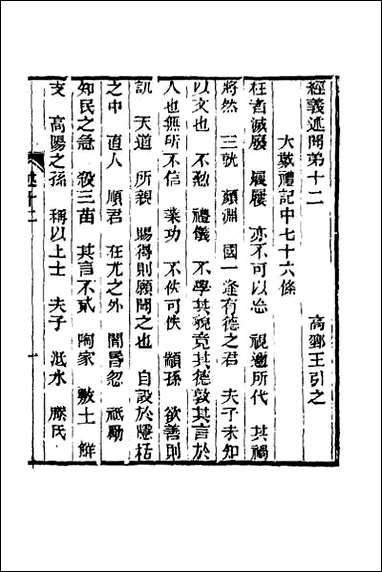 經義述聞弟十二 高郵王引之
大戴禮記中七十六條
在者滅廢 履屨 亦不可以忘 視邇所代 其禍
將然 三就 顏淵 國一逢有德之君 夫子未知
以文也 不愆 禮儀 不學其貌竟其德敦其言於
人也無所不信 業功 不佚可佚 顓孫 欲善則
訊 天道 所親 賜得則願聞之也 自設於隱栝
之中 直人 順君 在尤之外 聞昏忽 祇勵
知民之急 殺三苗 其言不貳 陶家 敷土 鮮
支 高陽之孫 稱以上士 夫子 泜水 滕氏
述十二 一